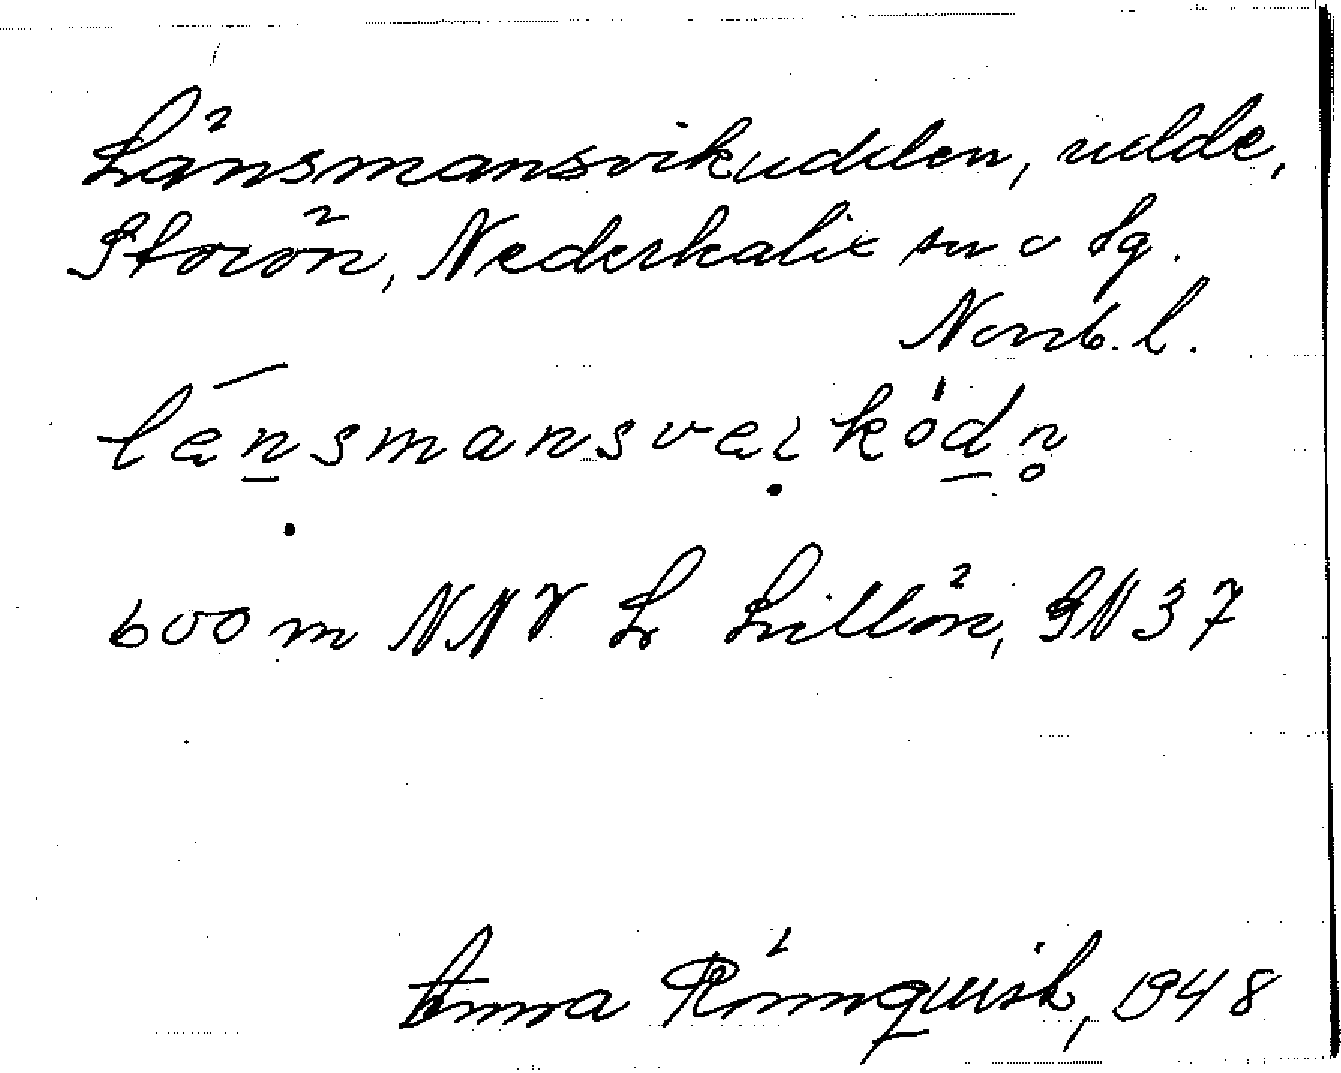 Länsmansvikudden, udde,
Storön, Nederkalix sn o tg.
Norrb. l.
lænsmansvæikódn̥
600 m NNV L Lillön, SN 37
Anna Rönnqvist, 1948